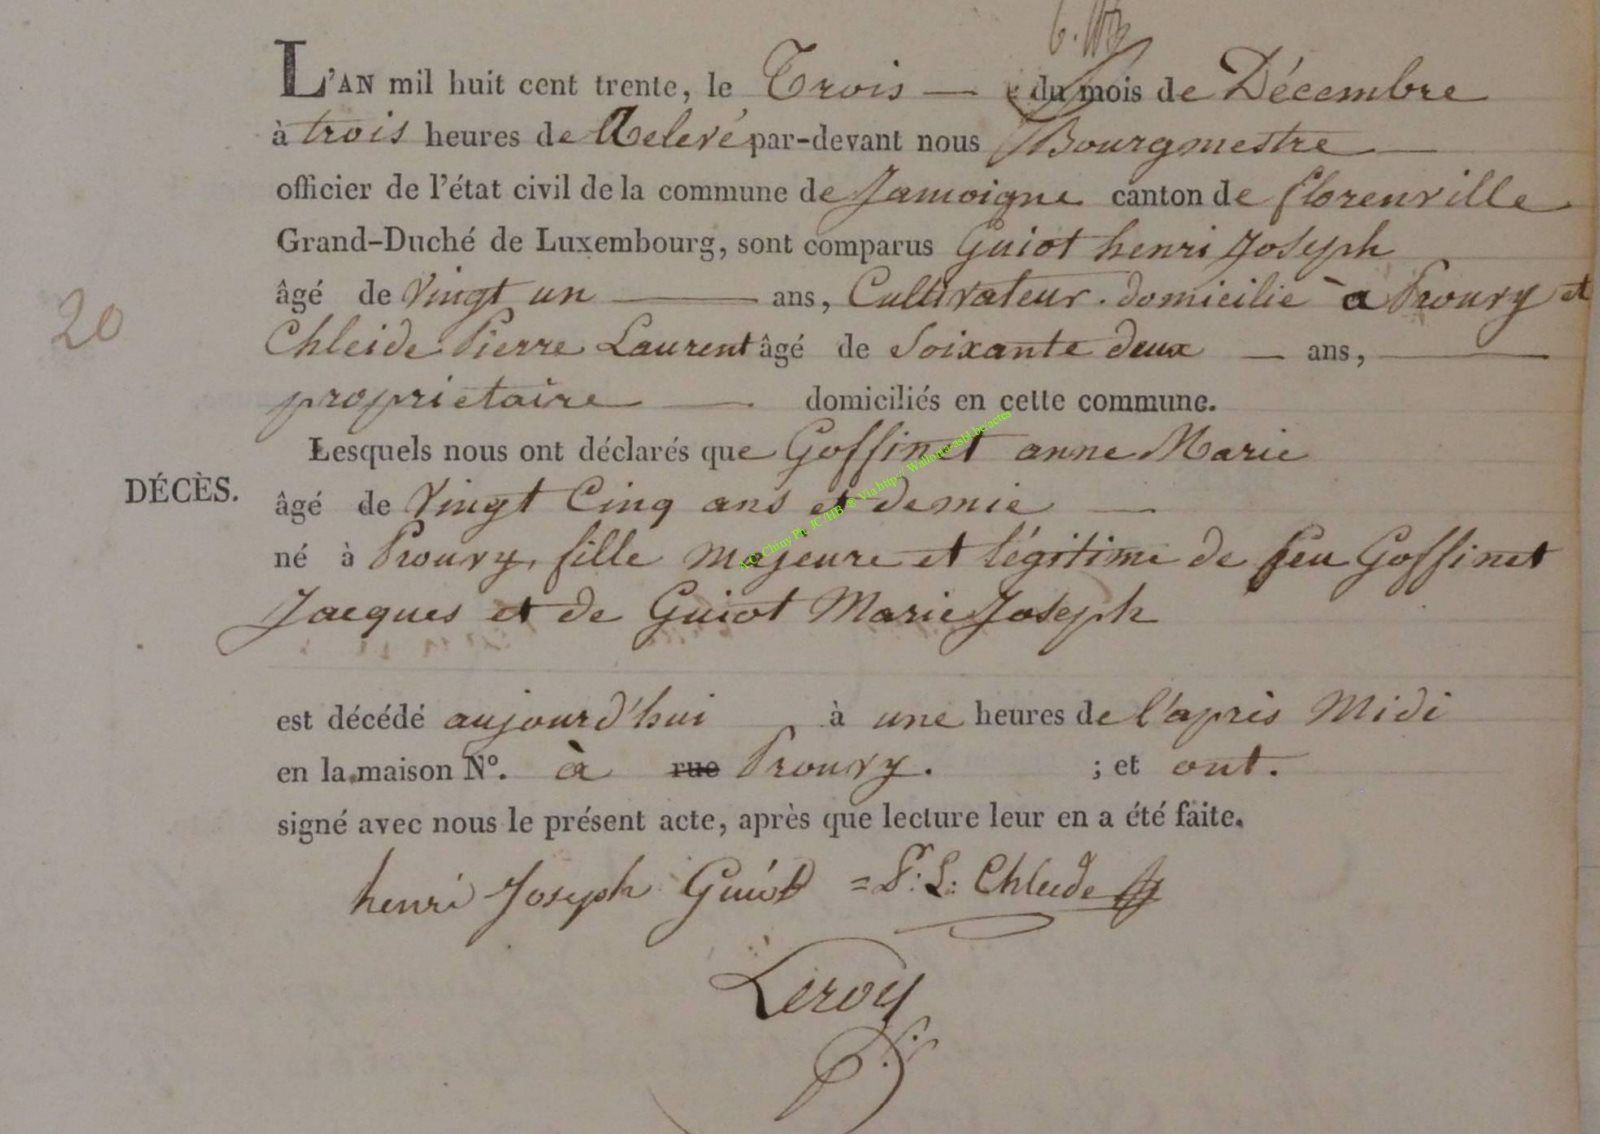 L'AN mil huit cent trente, le Trois du mois de Décembre
à trois heures de Relevé par-devant nous Bourgmestre
officier de l'état civil de la commune de Jamoigne canton de florenville
Grand-Duché de Luxembourg, sont comparus Guiot henri Joseph
âgé de Vingt un ans, Cultivateur domicilié à Prouvy et
Chleide Pierre Laurent âgé de Soixante deux ans,
proprietaire domiciliés en cette commune.
Lesquels nous ont déclarés que Goffinet anne Marie
DÉCÈS.
âgé de Vingt Cinq ans et demie
né à Prouvy, fille majeure et légitime de feu Goffinet
Jacques et de Guiot Marie Joseph
est décédé aujourd'hui à une heures de l'après Midi
en la maison N°. à rue Prouvy. ; et ont.
signé avec nous le présent acte, après que lecture leur en a été faite.
henri Joseph Guiot = P: L: Chleide
Leroy
20